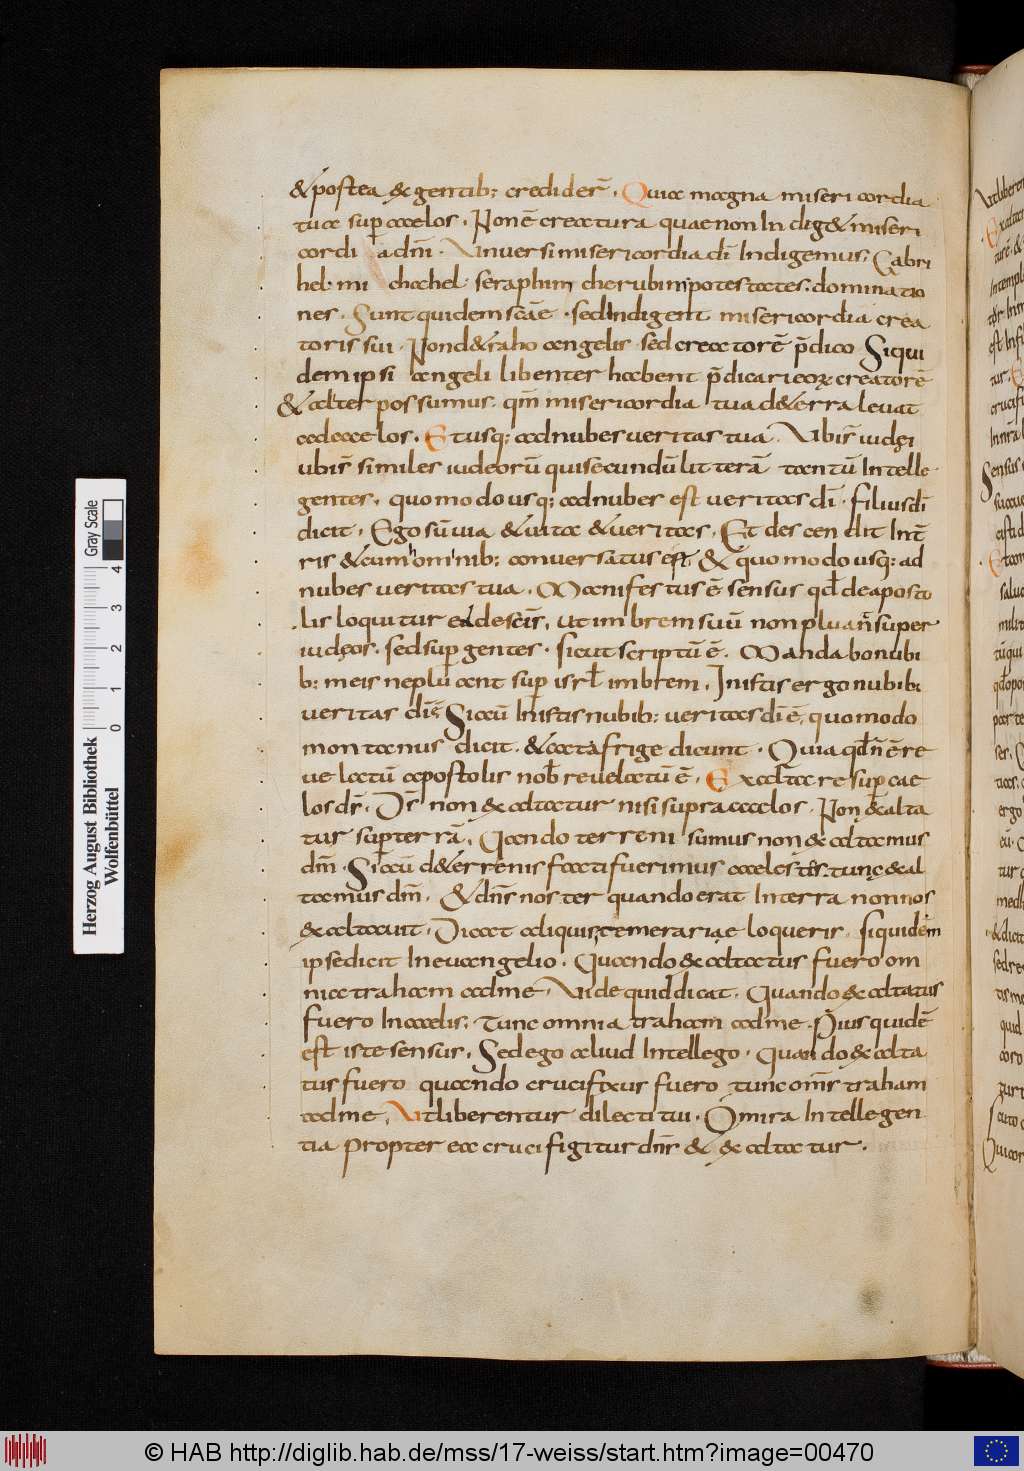 & postea & gentib; credider̄. Quia magna misericordia
tua sup caelos. Non ē creatura quae non indig& miseri
cordia dm̄. Universi misericordia dī indigemus; Gabri
hel. michahel. seraphim cherubim potestates. dominatio
nes. Sunt quidem scāe. sed indigent misericordia crea
toris sui. Non d&raho angelis. sed creatorē p̄dico. Siqui
dem ipsi angeli libenter habent p̄dicari eorꝝ creatorē
& aliter possumus. qm̄ misericordia tua d&erra levat
ad caelos. Et usq; ad nubes veritas tua. Ubi s̄t iudęi
ubi s̄t similes iudeorū qui secundū litterā tantū intelle
gentes. quomodo usq; ad nubes est veritas dī. filius dī
dicit. Ego sū via & vita & veritas. Et descendit in t̄
ris & cum hominib; conversatus est. & quomodo usq; ad
nubes veritas tua. Manifestus ē sensus qđ de aposto
lis loquitur ei descīs, ut imbrem suū non pluan̄ super
iudęos. sed sup gentes. sicut scriptū ē. Mandabo nubi
b; meis ne pluant sup isrł imbrem. In istis ergo nubib;
veritas dī ē. Si acū in istis nubib; veritas dī ē, quomodo
montanus dicit. & catafrige dicunt. Quia qđ n̄ ē re
velatū apostolis nob̄ revelatū ē. Exaltare sup cae
los ds̄. Ds̄ non exaltatur nisi supra caelos. Non exalta
tur sup terrā. Quando terreni sumus non exaltamus
dm̄. Si acū d&errenis facti fuerimus caelestes. tunc exal
tamus dm̄. & dn̄s noster quando erat in terra non nos
exaltavit. Dicat aliquis, temerariae loqueris. siquidem
ipse dicit in evangelio. Quando exaltatus fuero om
nia traham ad me. Vide quid dicat. Quando exaltatus
fuero in caelis. Tunc omnia traham ad me. Pius quidē
est iste sensus. Sed ego aliud intellego. Quando exalta
tus fuero quando crucifixus fuero tunc oms̄ traham
ad me. Ut liberentur dilecti tui. O mira intellegen
tia propter ea crucifigitur dn̄s & exaltatur.
Herzog August Bibliothek
Wolfenbüttel
Gray Scale
0 1 2 3 4
© HAB http://diglib.hab.de/mss/17-weiss/start.htm?image=00470